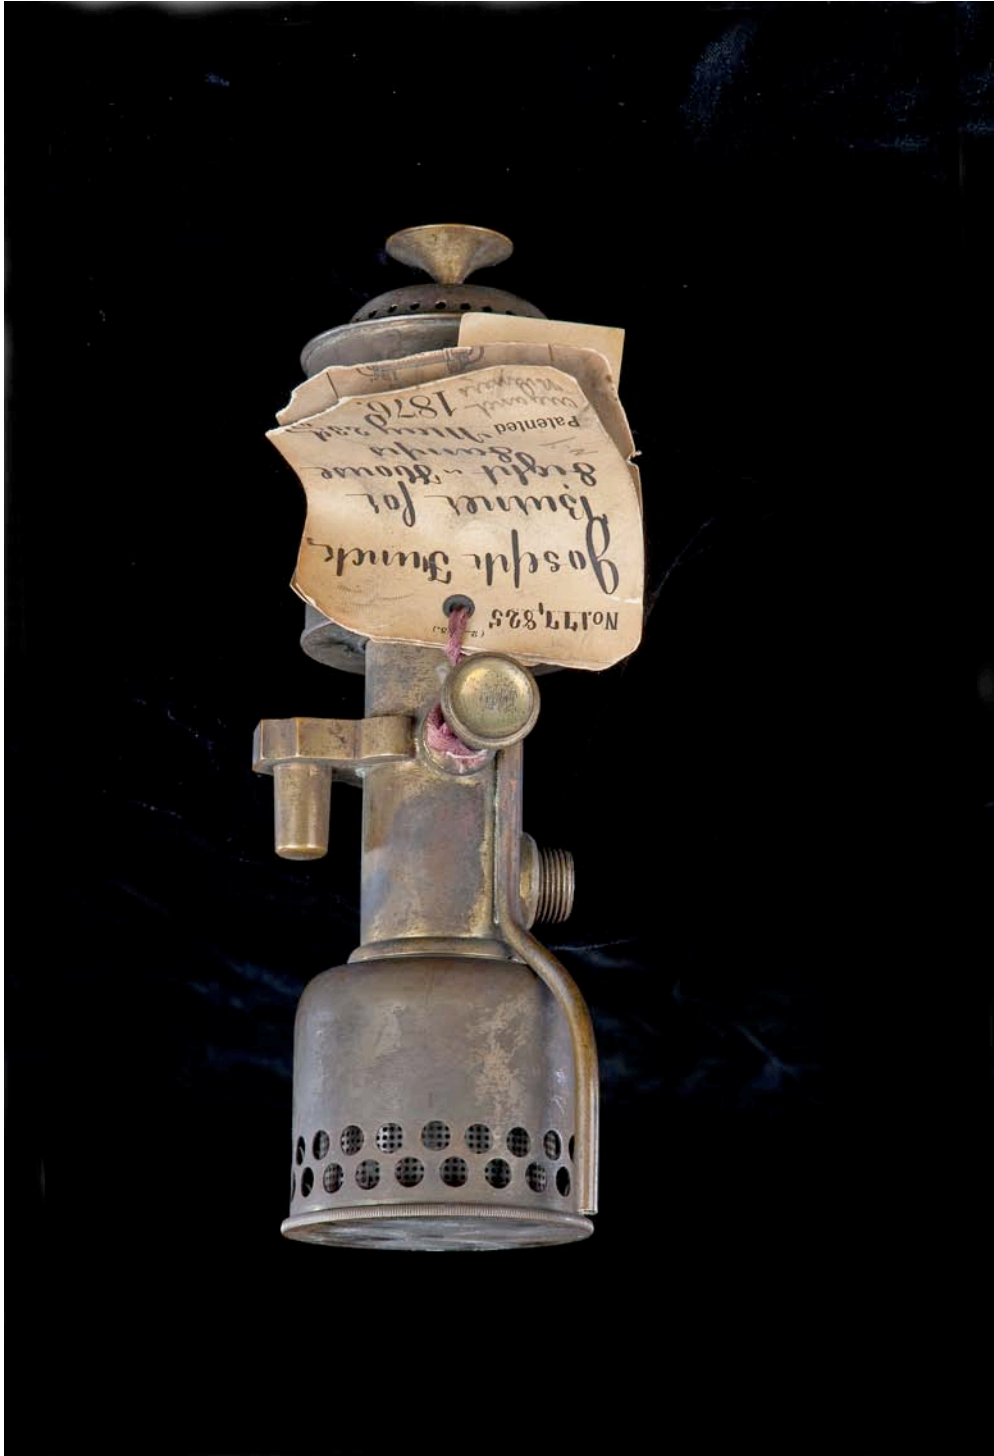 No. 177,825
Joseph Funck,
Burner for
Light-House
Lamps
Patented May 23d
1876.